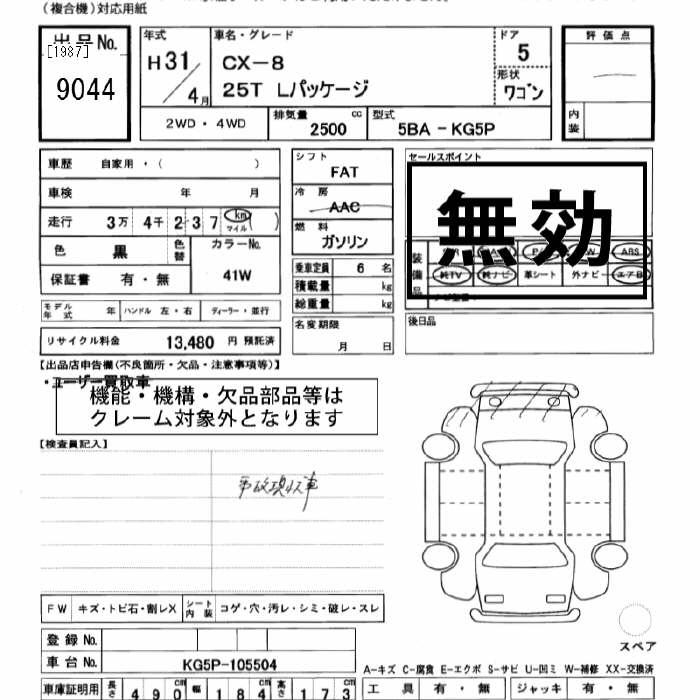 （複合機）対応用紙
出品No.
[1987]
9044
年式
H31/4月
車名・グレード
CX-8
25T Lパッケージ
ドア
5
形状
ワゴン
評価点
内装
2WD・4WD
排気量
2500 cc
型式
5BA - KG5P
車歴 自家用・（ ）
車検 年 月
走行 3万 4千 2 3 7 km マイル ( )
色 黒 色替
カラーNo.
41W
保証書 有・無
シフト
FAT
冷房
AAC
燃料
ガソリン
乗車定員 6 名
積載量 kg
総重量 kg
セールスポイント
無効
装備品
ABS
純TV 純ナビ 革シート 外ナビ エアB
モデル年式 年 ハンドル 左・右 ディーラー・並行
名変期限
月 日
後日品
リサイクル料金 13,480 円 預託済
【出品店申告欄（不良箇所・欠品・注意事項等）】
・ユーザー買取車
機能・機構・欠品部品等は
クレーム対象外となります
【検査員記入】
FW キズ・トビ石・割レX
シート内装 コゲ・穴・汚レ・シミ・破レ・スレ
登録No.
車台No. KG5P-105504
スペア
A-キズ C-腐食 E-エクボ S-サビ U-凹ミ W-補修 XX-交換済
車庫証明用 長さ 490 cm 幅 184 cm 高さ 173 cm
工具 有・無 ジャッキ 有・無